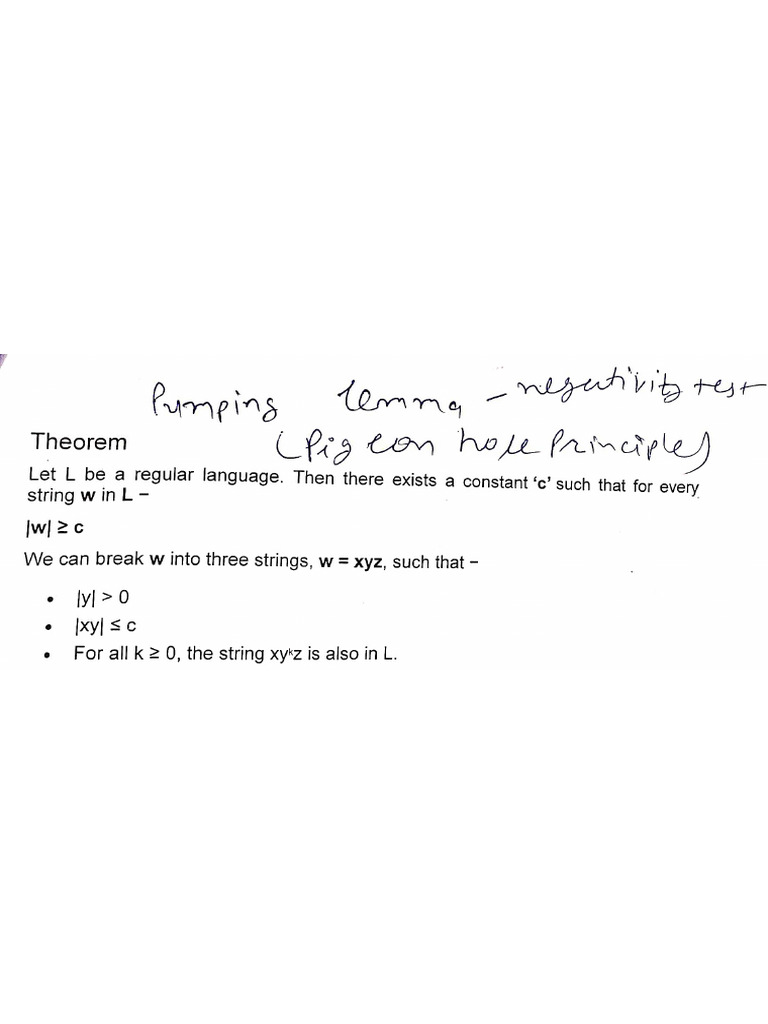 Pumping lemma - negativity test
Theorem (Pigeon hole Principle)
Let L be a regular language. Then there exists a constant 'c' such that for every
string w in L −
|w| ≥ c
We can break w into three strings, w = xyz, such that −
• |y| > 0
• |xy| ≤ c
• For all k ≥ 0, the string xyᵏz is also in L.